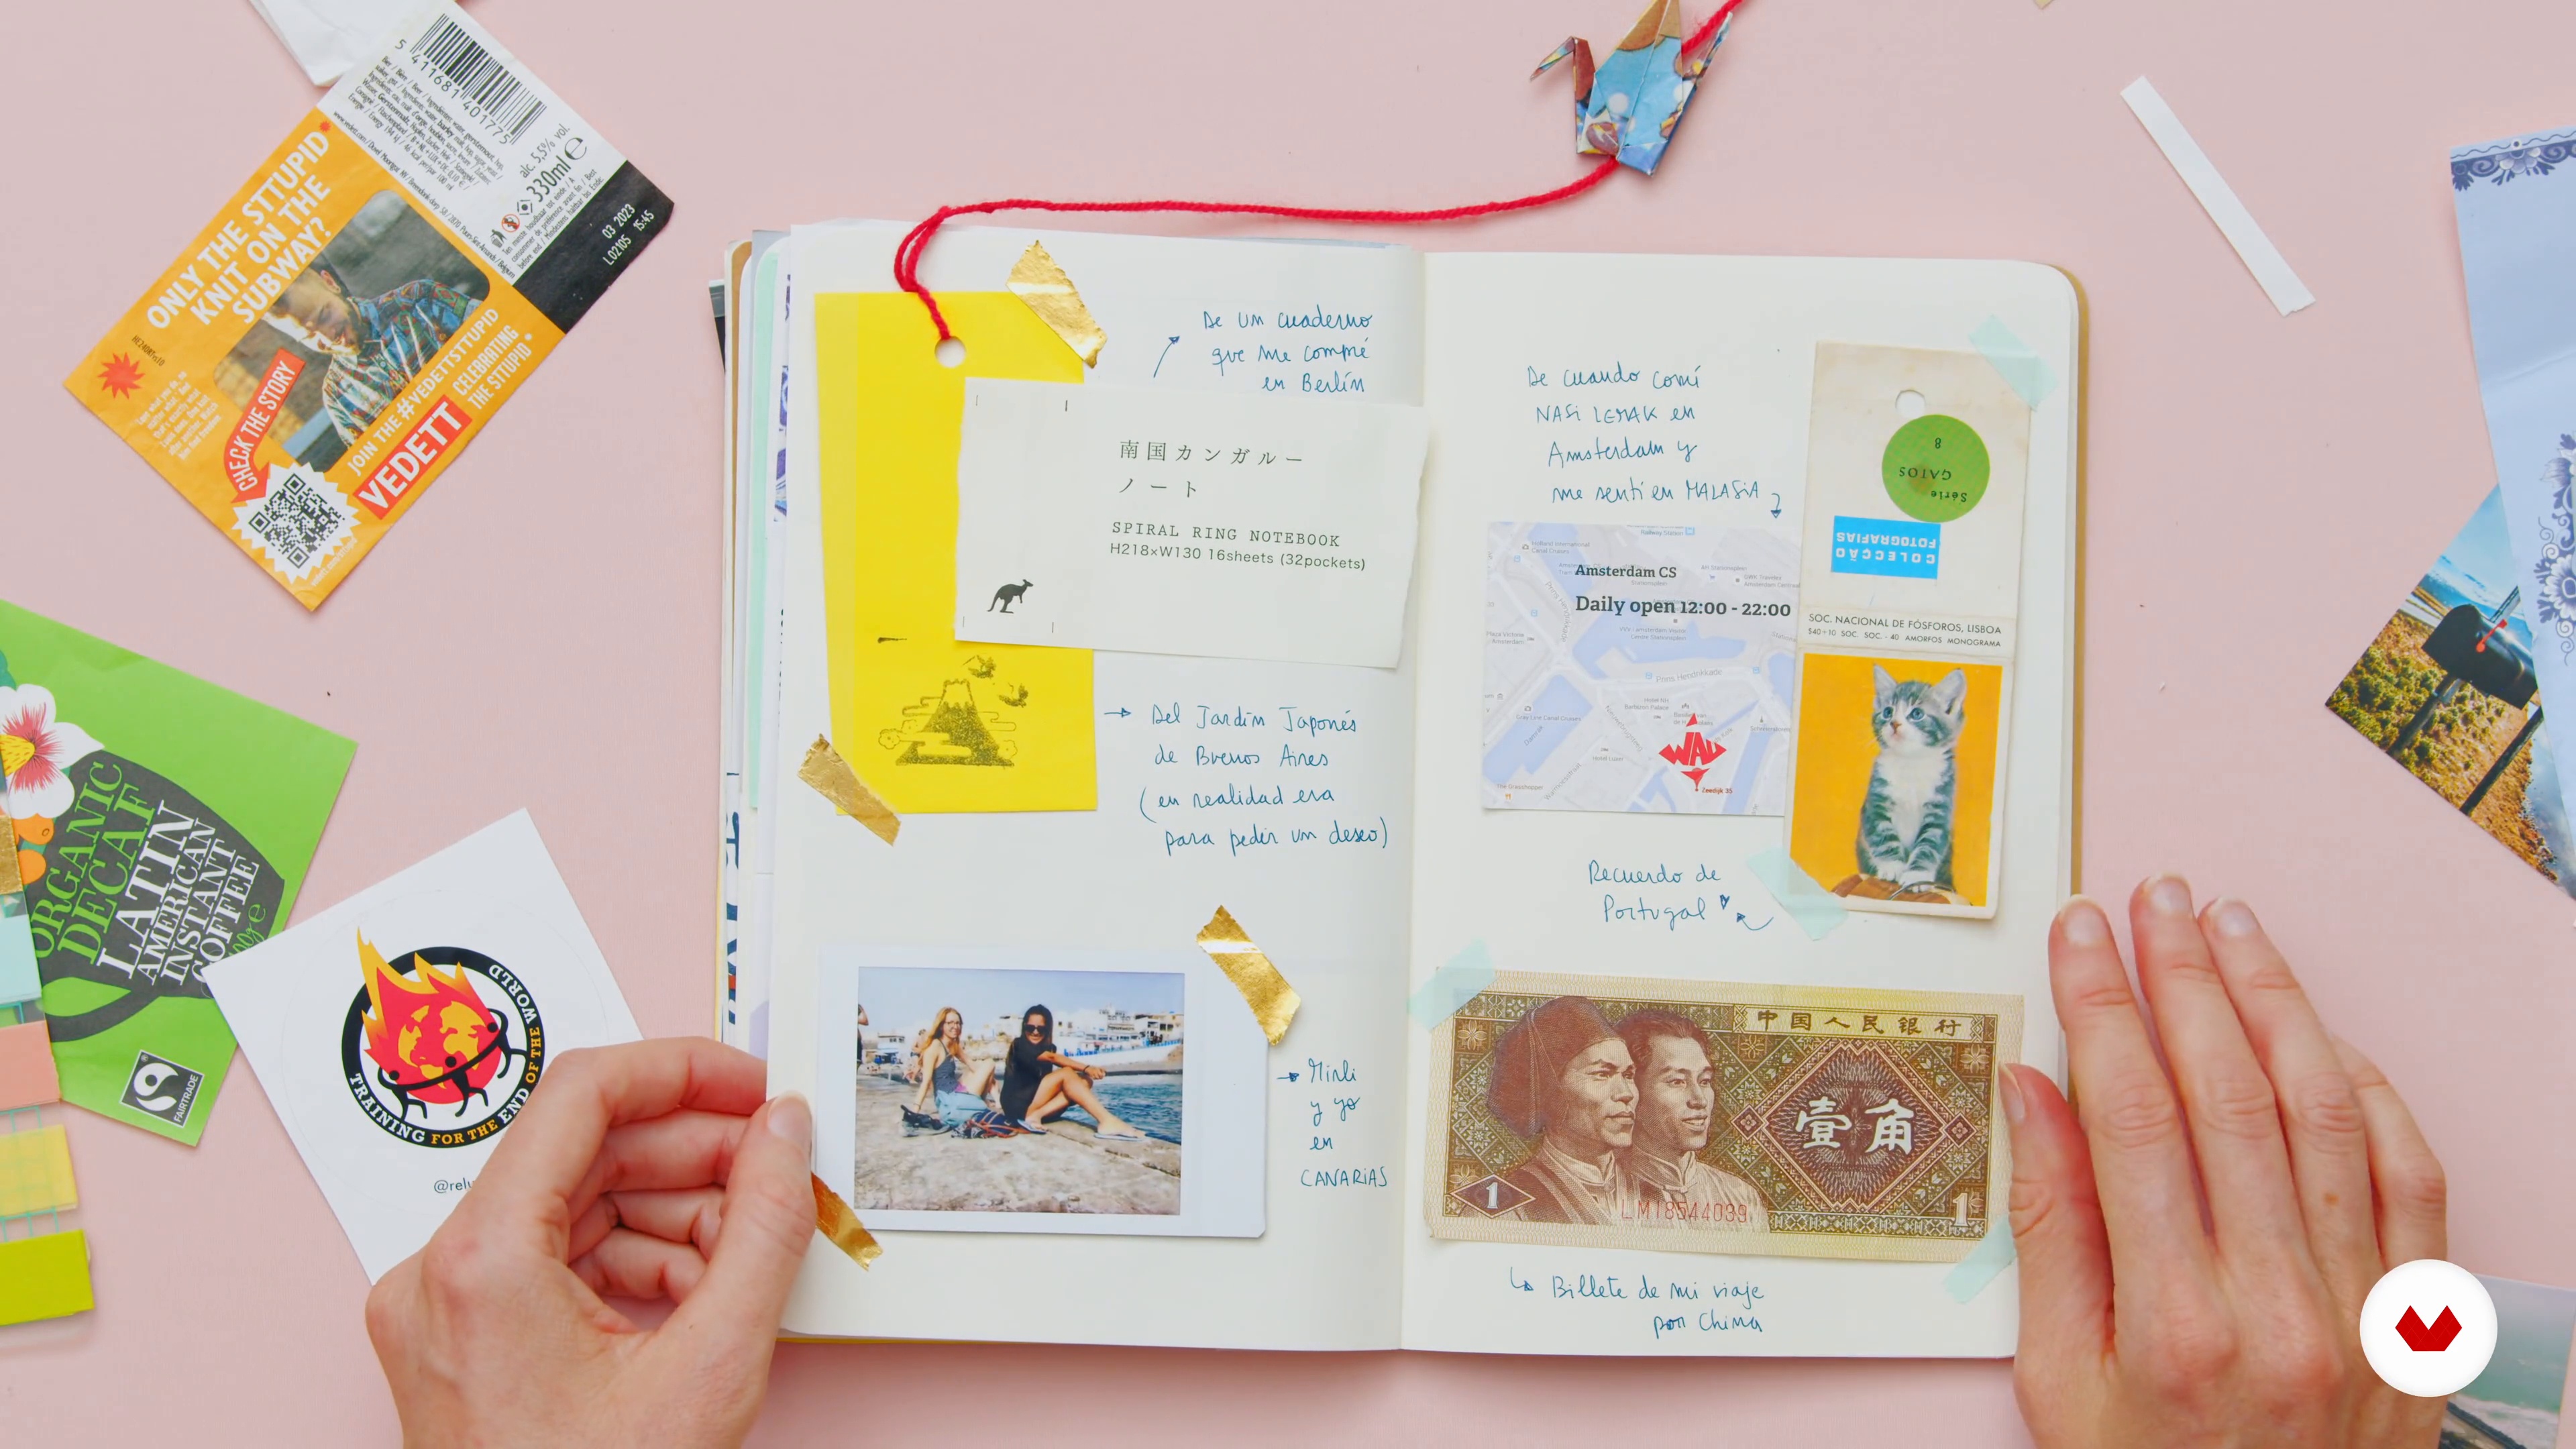 5 411681 401775
alc. 5,5% vol.
330ml e
03 2023
L02105 15:45
ONLY THE STTUPID
KNIT ON THE
SUBWAY?
CHECK THE STORY
JOIN THE #VEDETTSTTUPID
CELEBRATING
THE STTUPID
VEDETT
ORGANIC
DECAF
LATIN
AMERICAN
INSTANT
COFFEE
FAIRTRADE
TRAINING FOR THE END OF THE WORLD
De un cuaderno
que me compré
en Berlín
南国カンガルー
ノート
SPIRAL RING NOTEBOOK
H218×W130 16sheets (32pockets)
Del Jardín Japonés
de Buenos Aires
(en realidad era
para pedir un deseo)
Mirli
y yo
en
CANARIAS
De cuando comí
NASi LEMAK en
Amsterdam y
me sentí en MALASiA
Amsterdam CS
Daily open 12:00 - 22:00
Prins Hendrikkade
WAU
Zeedijk 35
Série
GATOS
8
COLECÇÃO
FOTOGRAFIAS
SOC. NACIONAL DE FÓSFOROS, LISBOA
$40+10 SOC. SOC. - 40 AMORFOS MONOGRAMA
Recuerdo de
Portugal
中国人民银行
壹角
1
LM18544039
1
Billete de mi viaje
por China